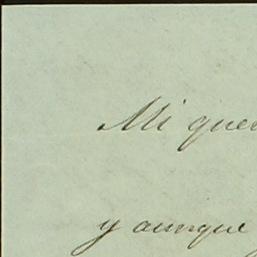 Mi quer
y aunque